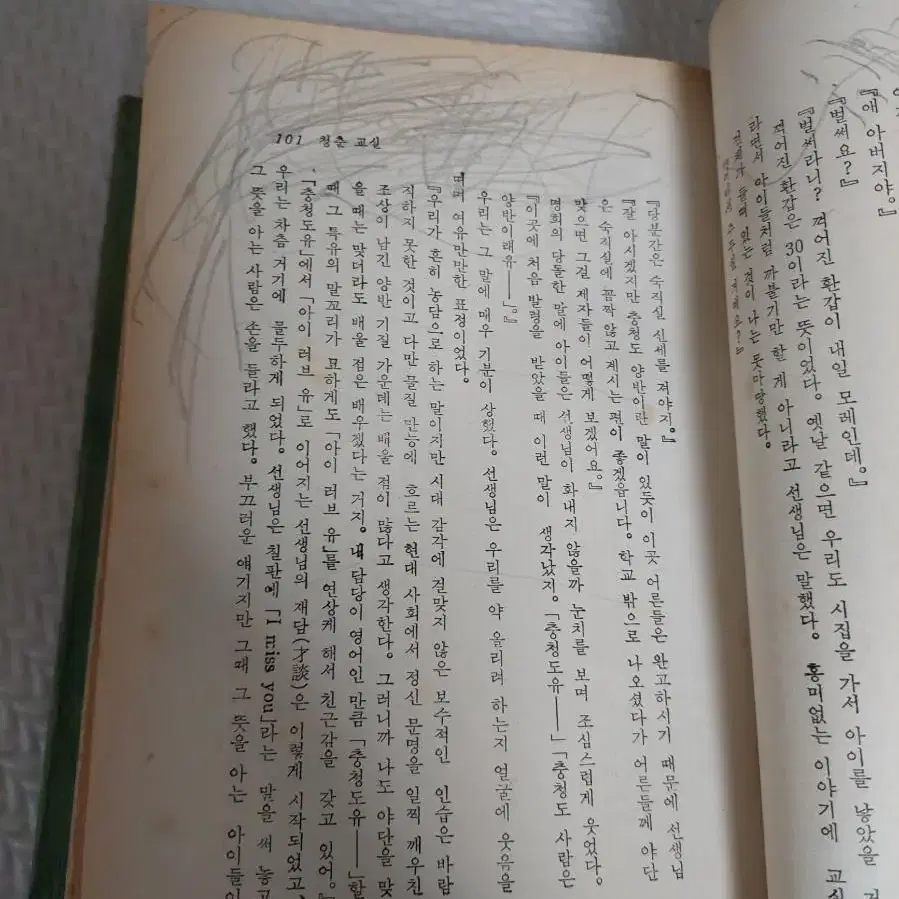 『애 아버지야。』
『벌써요?』
『벌써라니? 꺾어진 환갑이 내일 모레인데。』
꺾어진 환갑은 30이라는 뜻이었다。옛날 같으면 우리도 시집을 가서 아이를 낳았을
라면서 아이들처럼 까불기만 할 게 아니라고 선생님은 말했다。흥미없는 이야기에 교실
들떠 있는 것이 나는 못마땅했다。
거예요?』
101 청춘 교실
『당분간은 숙직실 신세를 져야지。』
『잘 아시겠지만 충청도 양반이란 말이 있듯이 이곳 어른들은 완고하시기 때문에 선생님
은 숙직실에 꼼짝 않고 계시는 편이 좋겠읍니다。학교 밖으로 나오셨다가 어른들께 야단
맞으면 그걸 제자들이 어떻게 보겠어요。』
명희의 당돌한 말에 아이들은 선생님이 화내지 않을까 눈치를 보며 조심스럽게 웃었다。
『이곳에 처음 발령을 받았을 때 이런 말이 생각났지。「충청도유——」「충청도 사람은
양반이래유——」。』
우리는 그 말에 매우 기분이 상했다。선생님은 우리를 약 올리려 하는지 얼굴에 웃음을
띠며 여유만만한 표정이었다。
『우리가 흔히 농담으로 하는 말이지만 시대 감각에 걸맞지 않은 보수적인 인습은 바람
직하지 못한 것이고 다만 물질 만능에 흐르는 현대 사회에서 정신 문명을 일찍 깨우친
조상이 남긴 양반 기질 가운데는 배울 점이 많다고 생각한다。그러니까 나도 야단을 맞
을 때는 맞더라도 배울 점은 배우겠다는 거지。내 담당이 영어인 만큼 「충청도유——」할
때 그 특유의 말꼬리가 묘하게도 「아이 러브 유」를 연상케 해서 친근감을 갖고 있어。』
「충청도유」에서 「아이 러브 유」로 이어지는 선생님의 재담(才談)은 이렇게 시작되었고、
우리는 차츰 거기에 몰두하게 되었다。선생님은 칠판에 「I miss you」라는 말을 써 놓고
그 뜻을 아는 사람은 손을 들라고 했다。부끄러운 얘기지만 그때 그 뜻을 아는 아이들이